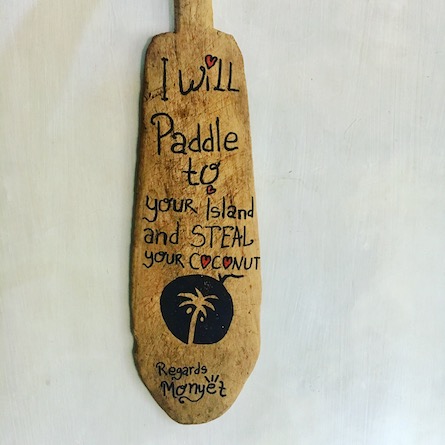 I Will
Paddle
to
your Island
and STEAL
your COCONUT
Regards
Monyet